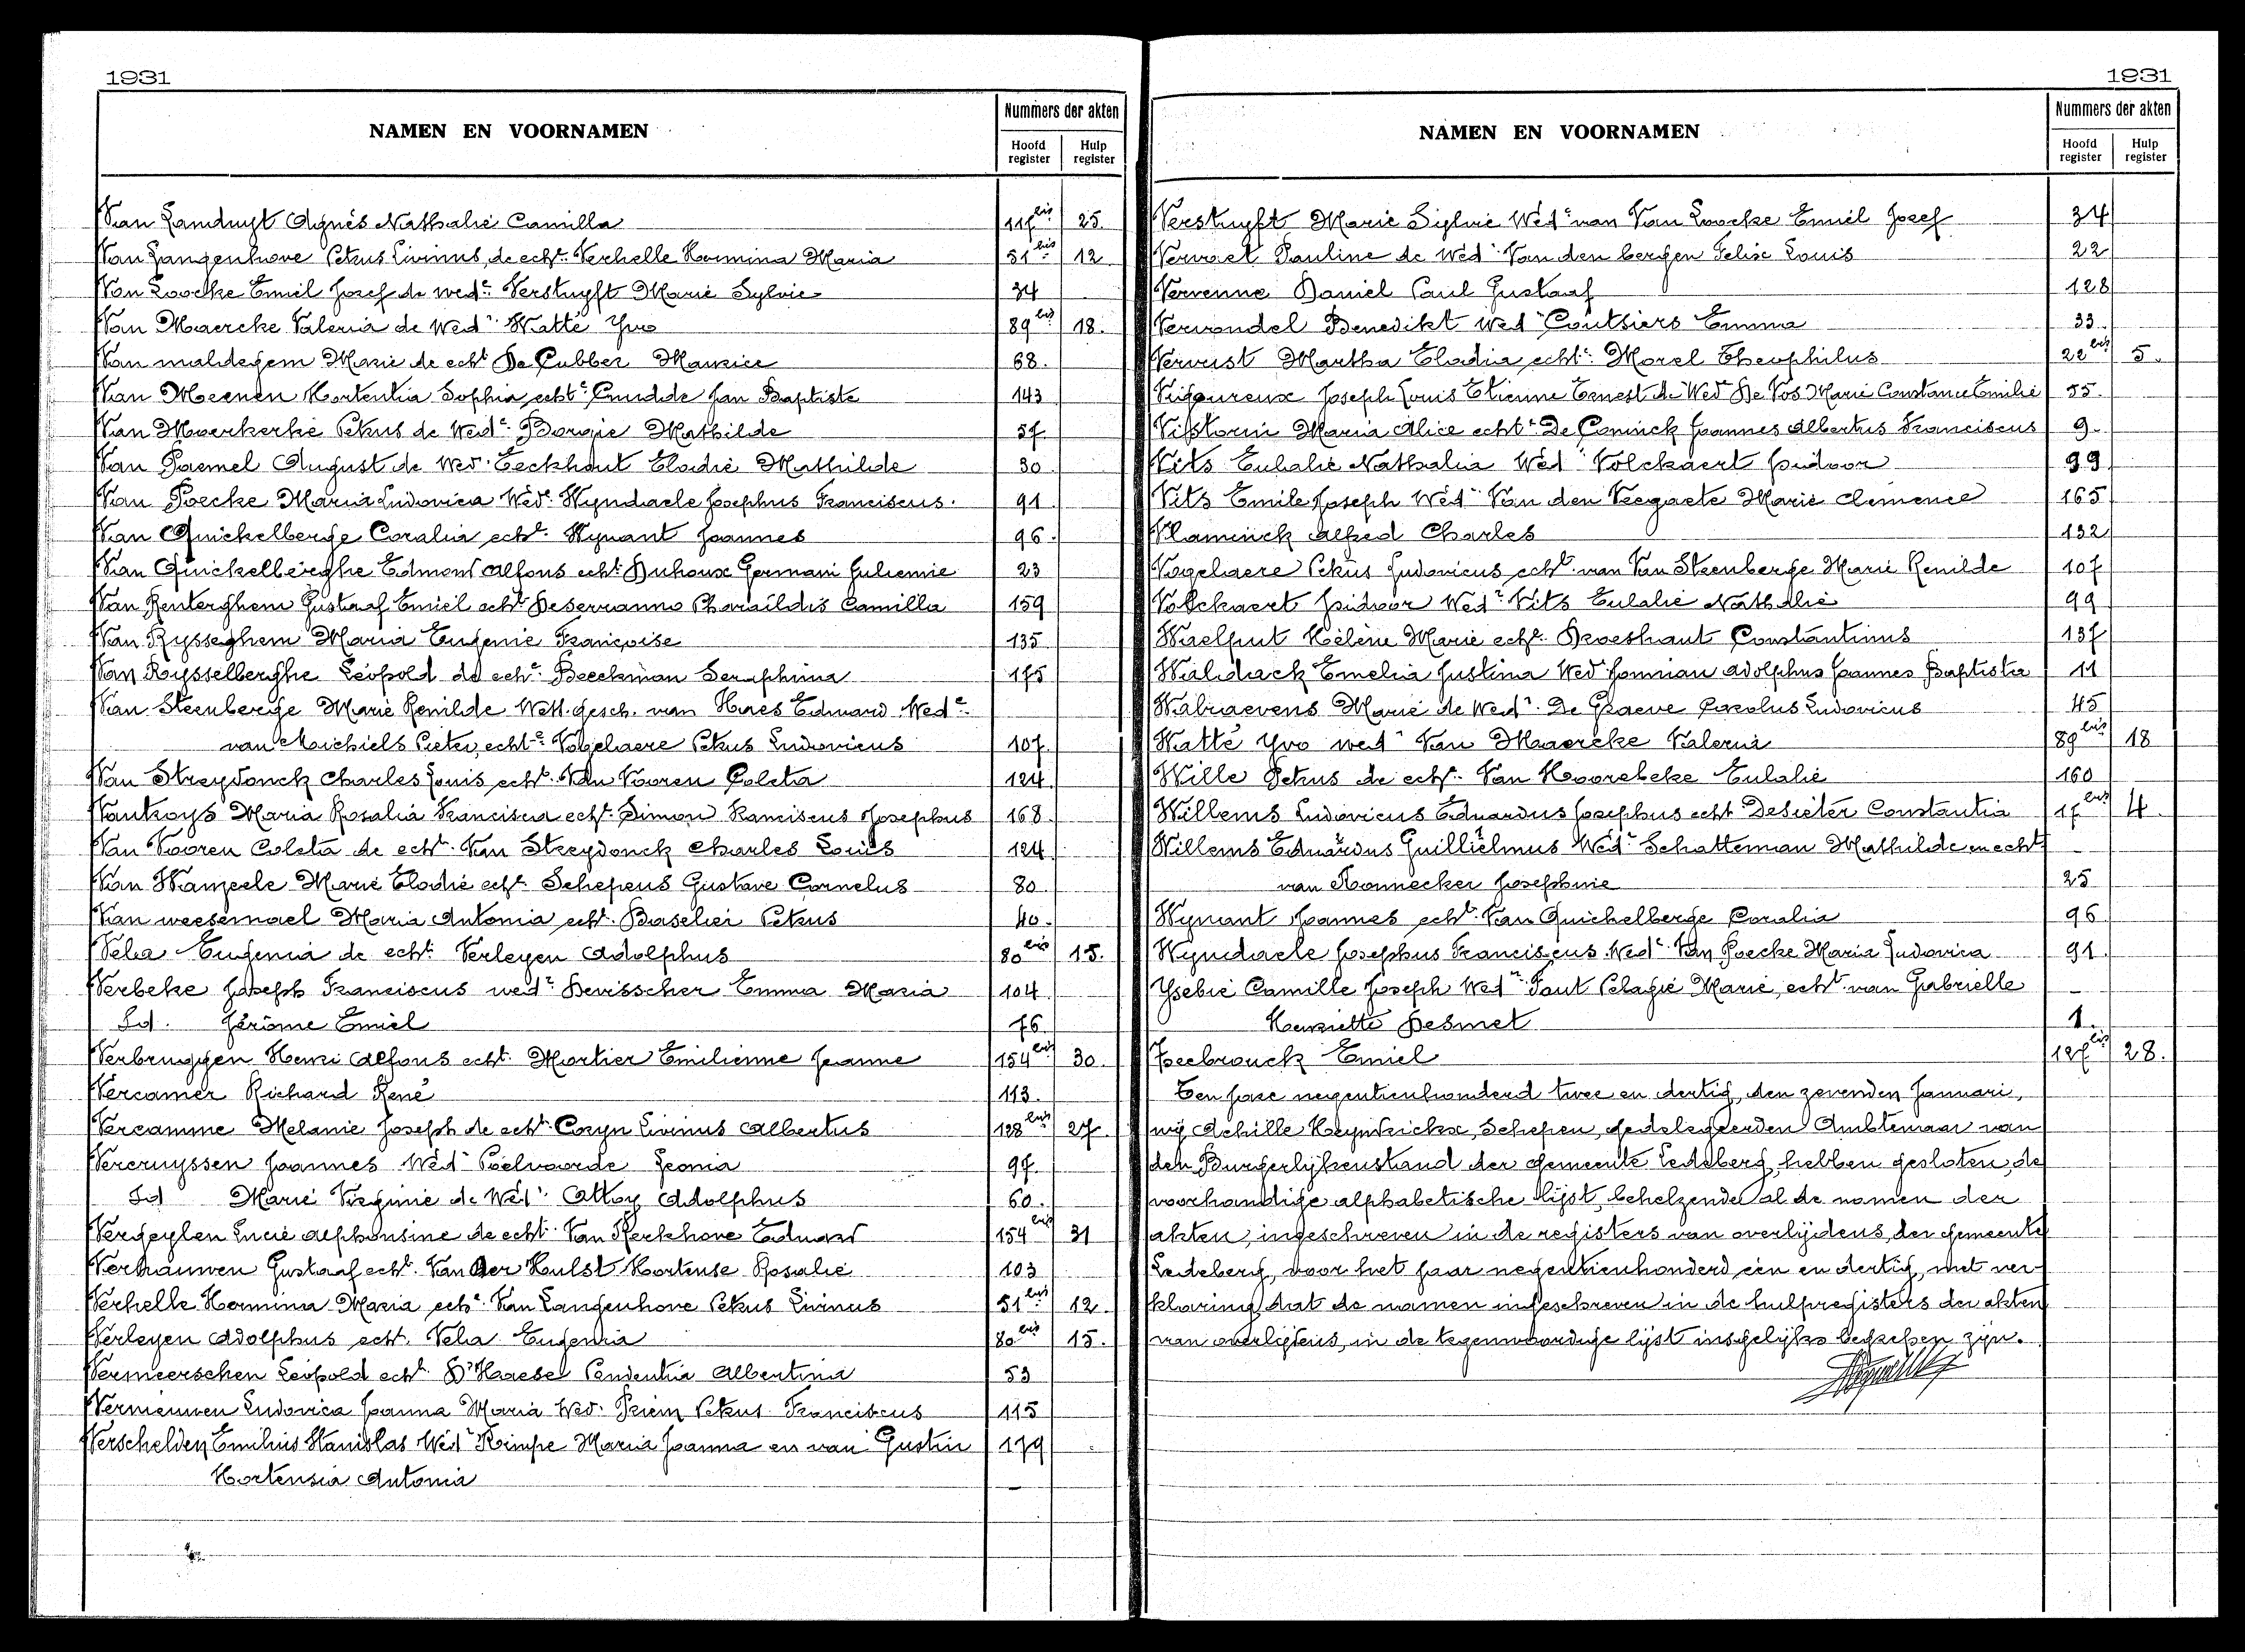 1931
NAMEN EN VOORNAMEN
Nummers der akten
Hoofd register
Hulp register
Van Landuyt Agnès Nathalie Camilla 117bis 25
Van Langenhove Petrus Livinus, de echt. Verhelle Hermina Maria 51bis 12
Van Loocke Emiel Josef de wede Verstuyft Marie Sylvie 34
Van Maercke Valeria de Wede Watté Yvo 89bis 18.
Van maldegem Marie de echt De Cubber Maurice 68.
Van Meenen Hortentia Sophia echte Jan Baptiste 143
Van Moerkerke Petrus de Wede Borgie Mathilde 57
Van Paemel August de Wed. Eeckhout Elodie Mathilde 30
Van Poecke Maria Ludovica Wede Wyndaele Josephus Franciscus. 91
Van Quickelberge Coralia echt. Wynant Joannes 96.
Van Quickelberghe Edmond Alfons echt. Duhoux Germani 23
Van Renterghem Gustaaf Emiel echt. Deserranno Pharaïldis Camilla 159
Van Rysseghem Maria Eugenie Françoise 135
Van Rysselberghe Léopold de echt. Beeckman Seraphina 175
Van Steenberge Marie Renilde Wett. gesch. van Haes Eduard Wede
van Michiels Pieter, echte Vogelaere Petrus Ludovicus 107
Van Streydonck Charles Louis echt. Van Vooren Coleta 124
Vantroys Maria Rosalia Francisca echt. Simon Franciscus Josephus 168
Van Vooren Coleta de echt. Van Streydonck Charles Louis 124
Van Wanzeele Marie Elodie echt. Schepens Gustave Cornelus 80
Van weesemael Maria Antonia echt. Baselier Petrus 40.
Velia Eugenia de echt. Verleyen Adolphus 80bis 15.
Verbeke Joseph Franciscus wede Devisscher Emma Maria 104
Id. Jérôme Emiel 76
Verbruggen Henri Alfons echt. Mortier Emilienne Jeanne 154bis 30.
Vercamer Richard René 113.
Vercamme Melanie Joseph de echt. Coryn Livinus Albertus 128bis 27.
Vercruyssen Joannes Wede Poelvoorde Leonia 97.
Id Marie Virginie de Wede Alloy Adolphus 60.
Vergeylen Lucie Alphonsine de echt. Van Kerkhove Eduard 154bis 31
Verhauwen Gustaaf echt. Van Der Hulst Hortense Rosalie 103
Verhelle Hermina Maria echt. Van Langenhove Petrus Livinus 51bis 12.
Verleyen Adolphus echt. Velia Eugenia 80bis 15.
Vermeerschen Léopold echt. D'Haesel Prudentia Albertina 53
Vermeiwen Ludovica Joanna Maria Wed. Priem Petrus Franciscus 115
Verschelden Emilius Stanislas Wede Kimpe Maria Joanna en van Gustin 179
Hortensia Antonia
1931
NAMEN EN VOORNAMEN
Nummers der akten
Hoofd register
Hulp register
Verstuyft Marie Sylvie Wede van Van Loocke Emiel Josef 34
Vervaet Pauline de Wede Van den bergen Felix Louis 22
Vervenne Daniel Paul Gustaaf 128
Verwondel Benedikt Wede Coutsiers Emma 33
Vervust Martha Elodia echte Morel Theophilus 22bis 5.
Vigoureux Joseph Louis Etienne Ernest de Wed De Vos Marie Constance Emilie 55.
Maria Alice echte De Coninck Joannes Albertus Franciscus 9.
Vits Eulalie Nathalia Wede Volckaert Isidoor 99
Vits Emile Joseph Wede Van den Veegaete Marie Clemence 165
Vlaminck Alfred Charles 132
Vogelaere Petrus Ludovicus echt. van Van Steenberge Marie Renilde 107
Volckaert Isidoor Wede Vits Eulalie Nathalie 99
Waelput Hélène Marie echt. Broeshaut Constantinus 137
Walidack Emelia Justina Wed Adolphus Joannes Baptista 11
Walraevens Marie de Wede De Graeve Carolus Ludovicus 45
Watté Yvo wede Van Maercke Valeria 89bis 18
Wille Petrus de echt. Van Hoorebeke Eulalie 160
Willems Ludovicus Eduardus Josephus echt Desieter Constantia 17bis 4
Willems Eduardus Guilliëlmus Wede Schatteman Mathilde en echt
van Honnecker Josephine 25
Wynant Joannes echt. Van Quickelberge Coralia 96
Wyndaele Josephus Franciscus Wede Van Poecke Maria Ludovica 91
Ysebie Camille Joseph Wede Pelagie Marie, echt. van Gabrielle
Henriette Desmet 1.
Ysebrouck Emiel 127bis 28.
Ten jare negentienhonderd twee en dertig, den zevenden Januari,
wij Achille Heyndrickx, Schepen, gedelegeerden Ambtenaar van
den Burgerlijkenstand der gemeente Ledeberg, hebben gesloten, de
voorhandige alphabetische lijst, behelzende al de namen der
akten ingeschreven in de registers van overlijdens, der gemeente
Ledeberg, voor het jaar negentienhonderd een en dertig, met ver-
klaring dat de namen ingeschreven in de hulpregisters der akten
van overlijdens, in de tegenwoordige lijst insgelijks begrepen zijn.